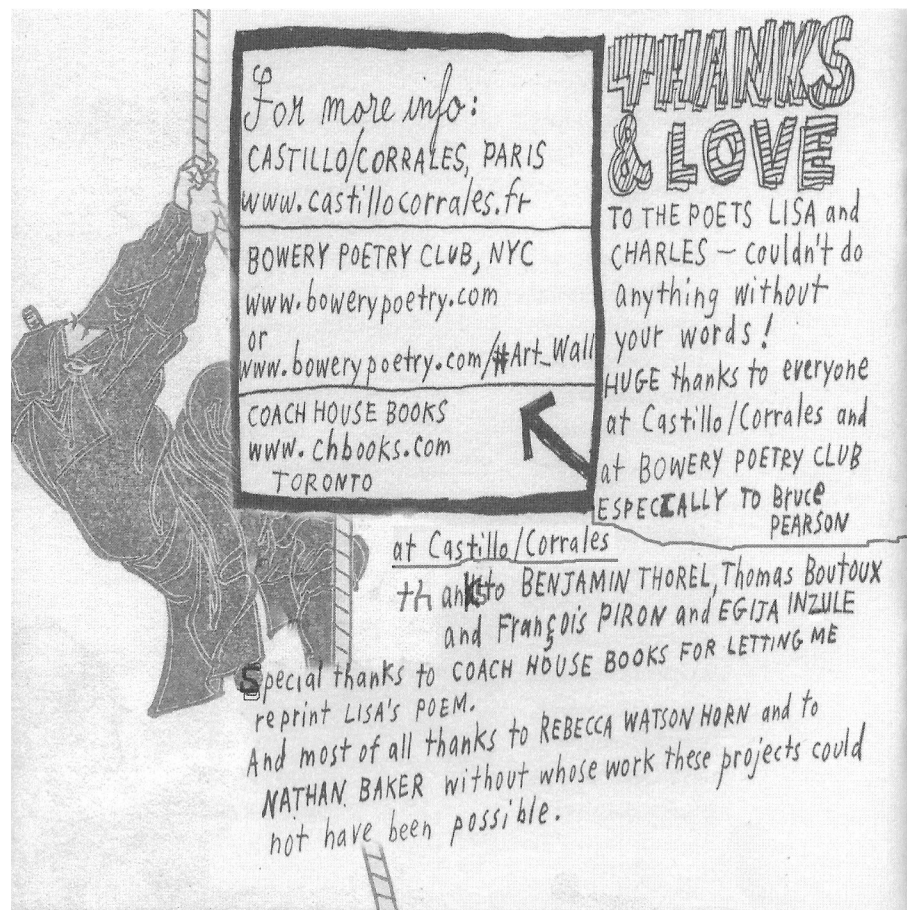 For more info:
CASTILLO/CORRALES, PARIS
www.castillocorrales.fr
BOWERY POETRY CLUB, NYC
www.bowerypoetry.com
or
www.bowerypoetry.com/#Art_Wall
COACH HOUSE BOOKS
www.chbooks.com
TORONTO
THANKS
& LOVE
TO THE POETS LISA and
CHARLES – couldn't do
anything without
your words!
HUGE thanks to everyone
at Castillo/Corrales and
at BOWERY POETRY CLUB
ESPECIALLY TO Bruce
PEARSON
at Castillo/Corrales
thanks to BENJAMIN THOREL, Thomas Boutoux
and François PIRON and EGIJA INZULE
Special thanks to COACH HOUSE BOOKS FOR LETTING ME
reprint LISA'S POEM.
And most of all thanks to REBECCA WATSON HORN and to
NATHAN BAKER without whose work these projects could
not have been possible.